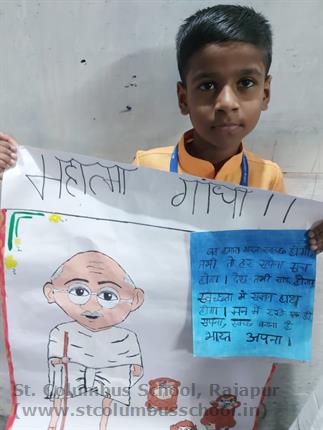 महात्मा गांधी
हर सपना सच
होगा। देश तभी
स्वच्छता में सबका हाथ
होगा। मन में रखो एक ही
सपना, स्वच्छ बनाना है
भारत अपना।
St. Columbus School, Rajapur
(www.stcolumbusschool.in)